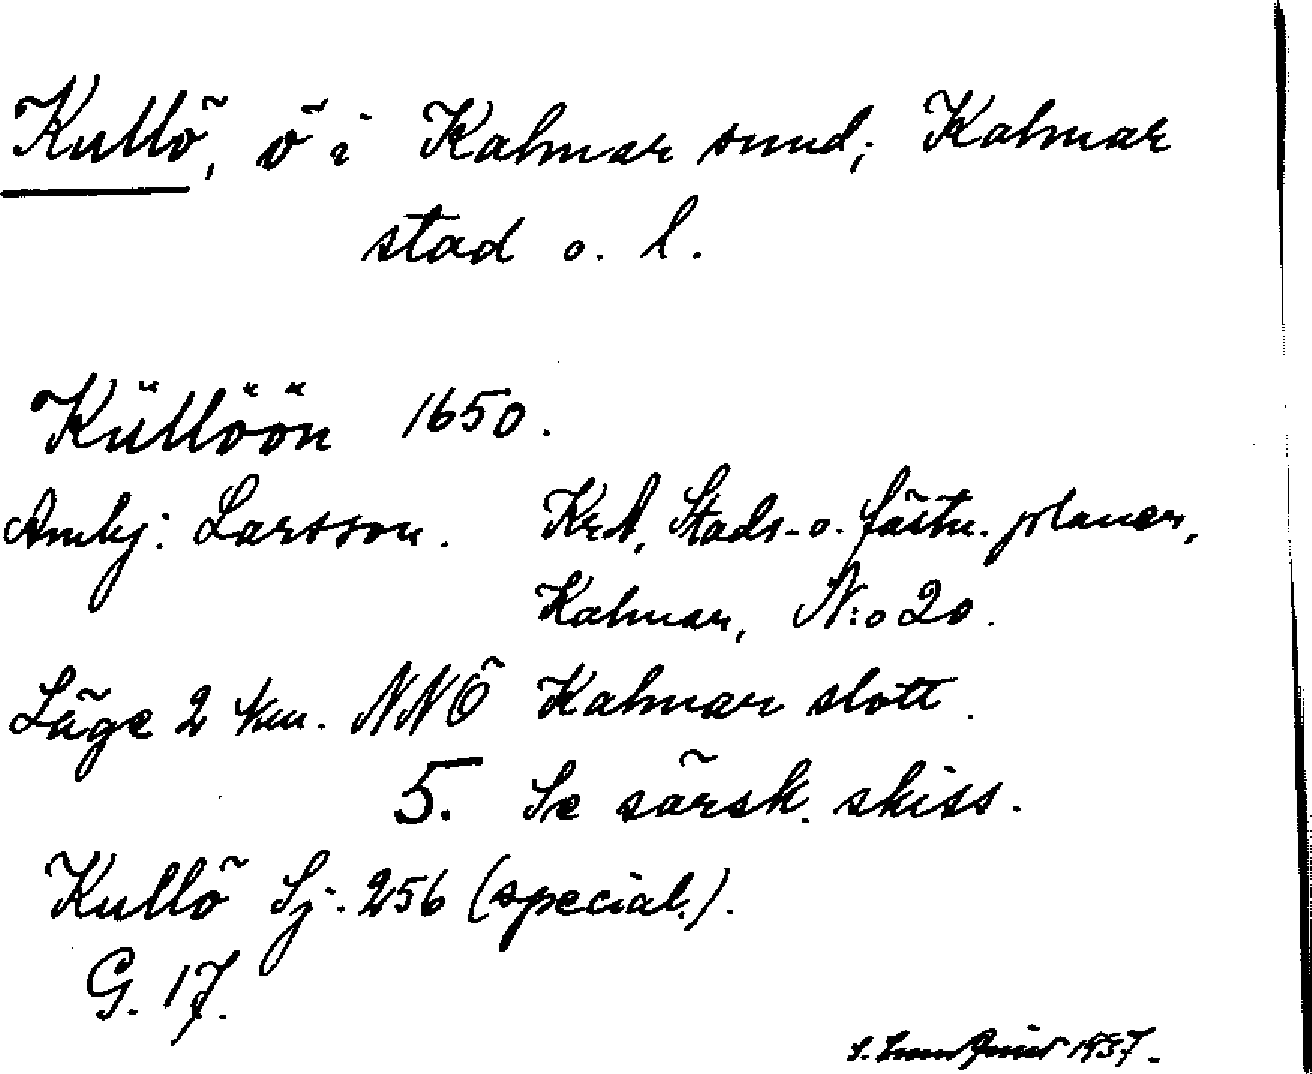 Kullö, ö i Kalmar sund; Kalmar
stad o. l.
Küllöön 1650.
Ambj: Larsson. KrA, Stads- o. fästn. planer,
Kalmar, N:o 20.
Läge 2 km. NNÖ Kalmar slott.
5. Se särsk. skiss.
Kullö Sj. 256 (special.).
G. 17.
1937.